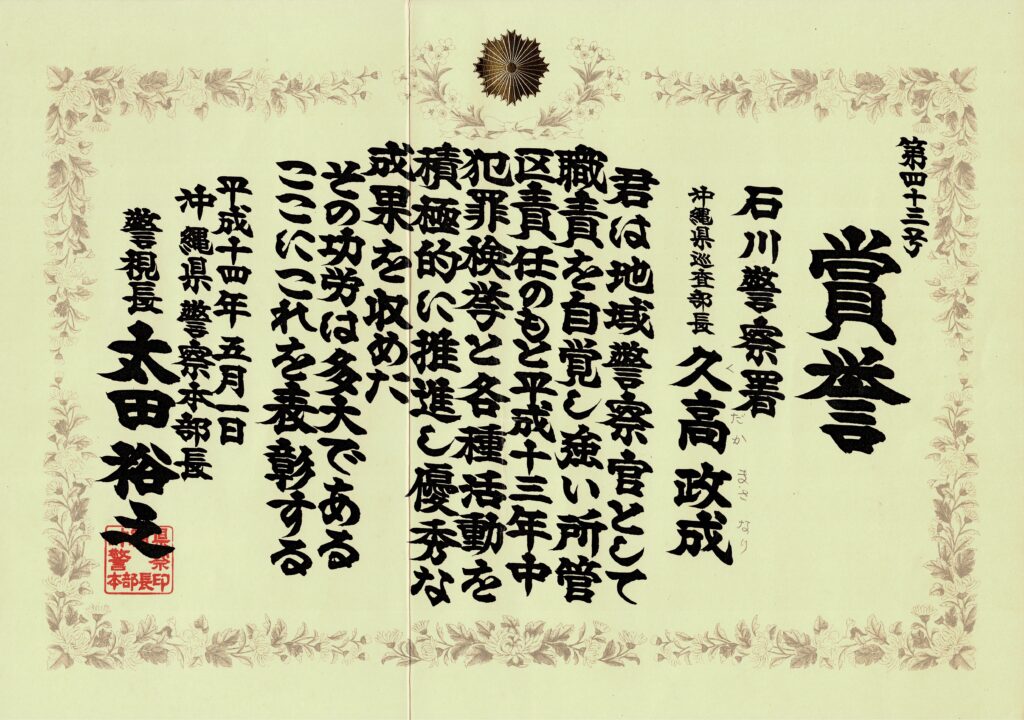 第四十三号
賞誉
石川警察署
沖縄県巡査部長 久高政成
くだか まさなり
君は地域警察官として
職責を自覚し強い所管
区責任のもと平成十三年中
犯罪検挙と各種活動を
積極的に推進し優秀な
成果を収めた
その功労は多大である
ここにこれを表彰する
平成十四年五月一日
沖縄県警察本部長
警視長 太田裕之
県察印
警部長
本